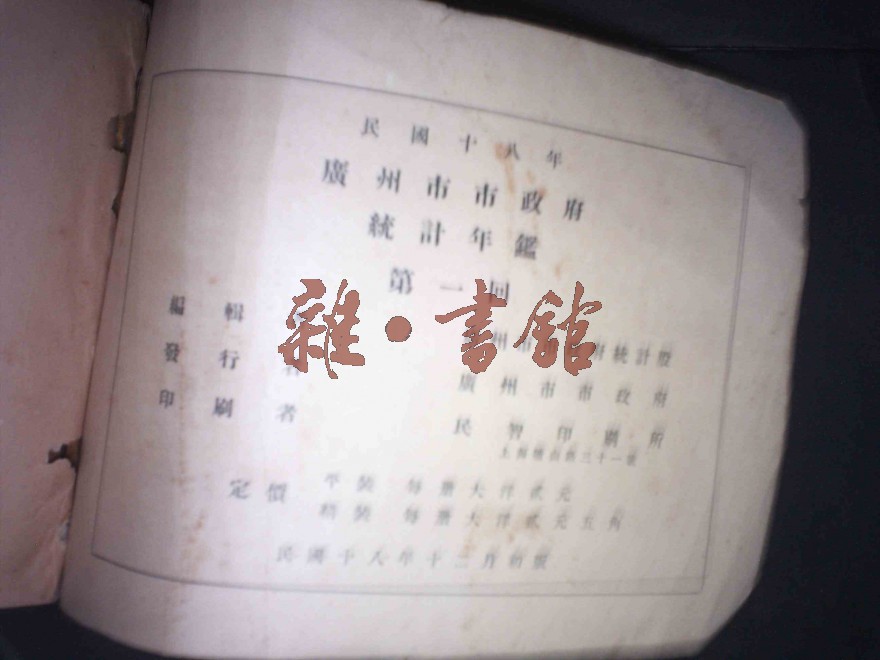 民國十八年
廣州市市政府
統計年鑑
第一回
編輯
州市市府統計股
發行者
廣州市市政府
印刷者
民智印刷所
定價
平裝 每冊大洋貳元
精裝 每冊大洋貳元五角
民國十八年十二月初版
雜·書館